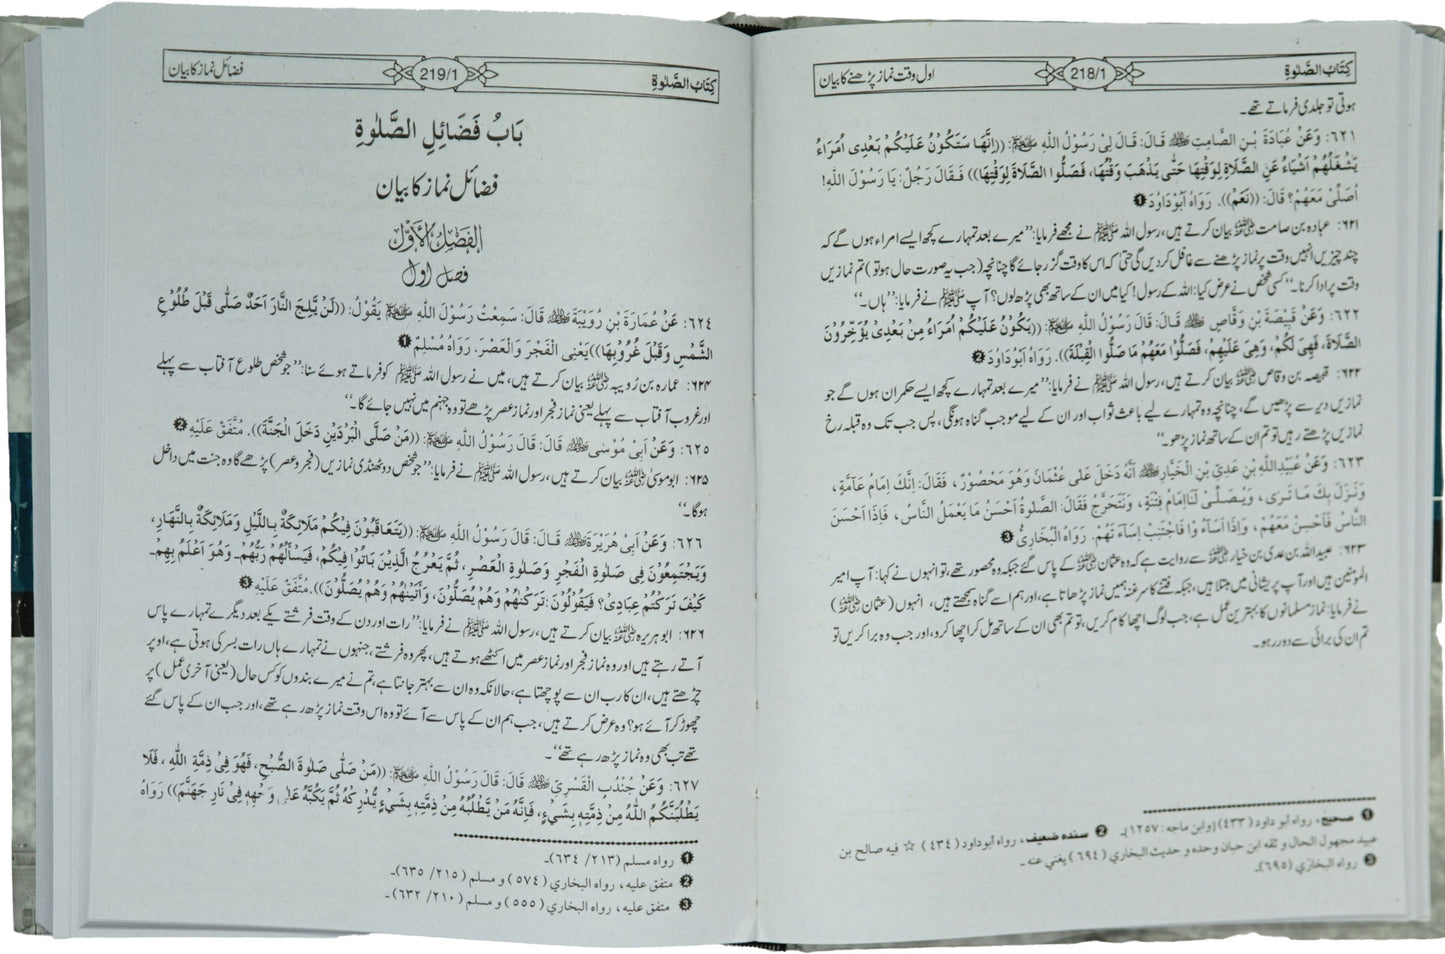 کِتَابُ الصَّلٰوةِ
218/1
اول وقت نماز پڑھنے کا بیان
ہوتی تو جلدی فرماتے تھے۔
٦٢١: وَعَنْ عُبَادَةَ بْنِ الصَّامِتِ ؓ قَالَ: قَالَ لِیْ رَسُوْلُ اللّٰہِ ﷺ: ((إِنَّهَا سَتَکُوْنُ عَلَیْکُمْ بَعْدِی اُمَرَاءُ
یَشْغَلُهُمْ اَشْیَاءُ عَنِ الصَّلَاةِ لِوَقْتِهَا حَتّٰی یَذْهَبَ وَقْتُهَا، فَصَلُّوا الصَّلَاةَ لِوَقْتِهَا)) فَقَالَ رَجُلٌ: یَا رَسُوْلَ اللّٰہِ!
اُصَلِّیْ مَعَهُمْ؟ قَالَ: ((نَعَمْ)). رَوَاهُ اَبُوْدَاوُدَ ❶
۶۲۱: عبادہ بن صامت ؓ بیان کرتے ہیں، رسول اللہ ﷺ نے مجھے فرمایا: ’’میرے بعد تمہارے کچھ ایسے امراء ہوں گے کہ
چند چیزیں انہیں وقت پر نماز پڑھنے سے غافل کر دیں گی حتیٰ کہ اس کا وقت گزر جائے گا چنانچہ (جب یہ صورت حال ہو تو) تم نمازیں
وقت پر ادا کرنا۔‘‘ کسی شخص نے عرض کیا: اللہ کے رسول! کیا میں ان کے ساتھ بھی پڑھ لوں؟ آپ ﷺ نے فرمایا: ’’ہاں۔‘‘
٦٢٢: وَعَنْ قَبِیْصَةَ بْنِ وَقَّاصٍ ؓ قَالَ: قَالَ رَسُوْلُ اللّٰہِ ﷺ: ((یَکُوْنُ عَلَیْکُمْ اُمَرَاءُ مِنْ بَعْدِیْ یُؤَخِّرُوْنَ
الصَّلَاةَ، فَهِیَ لَکُمْ، وَهِیَ عَلَیْهِمْ، فَصَلُّوْا مَعَهُمْ مَا صَلُّوا الْقِبْلَةَ)). رَوَاهُ اَبُوْدَاوُدَ ❷
۶۲۲: قبیصہ بن وقاص ؓ بیان کرتے ہیں، رسول اللہ ﷺ نے فرمایا: ’’میرے بعد تمہارے کچھ ایسے حکمران ہوں گے جو
نمازیں دیر سے پڑھیں گے، چنانچہ وہ تمہارے لیے باعث ثواب اور ان کے لیے موجب گناہ ہونگی، پس جب تک وہ قبلہ رخ
نمازیں پڑھتے رہیں تو تم ان کے ساتھ نماز پڑھو۔‘‘
٦٢٣: وَعَنْ عُبَیْدِاللّٰہِ بْنِ عَدِیِّ بْنِ الْخَیَارِ ؓ اَنَّهُ دَخَلَ عَلٰی عُثْمَانَ وَهُوَ مَحْصُوْرٌ، فَقَالَ: اِنَّكَ اِمَامُ عَامَّةٍ،
وَنَزَلَ بِكَ مَا تَرٰی، وَیُصَلِّیْ لَنَا اِمَامُ فِتْنَةٍ، وَنَتَحَرَّجُ فَقَالَ: الصَّلٰوةُ اَحْسَنُ مَا یَعْمَلُ النَّاسُ، فَاِذَا اَحْسَنَ
النَّاسُ فَاَحْسِنْ مَعَهُمْ، وَاِذَا اَسَآءُ وْا فَاجْتَنِبْ اِسَآءَ تَهُمْ. رَوَاهُ الْبُخَارِیُّ ❸
۶۲۳: عبیداللہ بن عدی بن خیار ؓ سے روایت ہے کہ وہ عثمان ؓ کے پاس گئے جبکہ وہ محصور تھے، تو انہوں نے کہا: آپ امیر
المومنین ہیں اور آپ پریشانی میں مبتلا ہیں، جبکہ فتنے کا سرغنہ ہمیں نماز پڑھاتا ہے، اور ہم اسے گناہ سمجھتے ہیں، انہوں (عثمان ؓ)
نے فرمایا: نماز مسلمانوں کا بہترین عمل ہے، جب لوگ اچھا کام کریں، تو تم بھی ان کے ساتھ مل کر اچھا کرو، اور جب وہ برا کریں تو
تم ان کی برائی سے دور رہو۔
❶ صحیح، رواه أبو داود (٤٣٣) [وابن ماجه: ١٢٥٧]۔ ❷ سنده ضعيف، رواه أبوداود (٤٣٤) ☆ فيه صالح بن
عبيد مجهول الحال و ثقه ابن حبان وحده و حديث البخاري (٦٩٤) يغني عنه۔
❸ رواه البخاري (٦٩٥)۔
کِتَابُ الصَّلٰوةِ
219/1
فضائل نماز کا بیان
بَابُ فَضَائِلِ الصَّلٰوةِ
فضائل نماز کا بیان
اَلْفَصْلُ الْاَوَّلُ
فصل اول
٦٢٤: عَنْ عُمَارَةَ بْنِ رُوَیْبَةَ ؓ قَالَ: سَمِعْتُ رَسُوْلَ اللّٰہِ ﷺ یَقُوْلُ: ((لَنْ یَّلِجَ النَّارَ اَحَدٌ صَلّٰی قَبْلَ طُلُوْعِ
الشَّمْسِ وَقَبْلَ غُرُوْبِهَا)) یَعْنِی الْفَجْرَ وَالْعَصْرَ. رَوَاهُ مُسْلِمٌ ❶
۶۲۴: عمارہ بن رُویبہ ؓ بیان کرتے ہیں، میں نے رسول اللہ ﷺ کو فرماتے ہوئے سنا: ’’جو شخص طلوع آفتاب سے پہلے
اور غروب آفتاب سے پہلے یعنی نماز فجر اور نماز عصر پڑھے تو وہ جہنم میں نہیں جائے گا۔‘‘
٦٢٥: وَعَنْ اَبِیْ مُوْسٰی ؓ قَالَ: قَالَ رَسُوْلُ اللّٰہِ ﷺ: ((مَنْ صَلَّی الْبَرْدَیْنِ دَخَلَ الْجَنَّةَ)). مُتَّفَقٌ عَلَیْهِ ❷
۶۲۵: ابوموسیٰ ؓ بیان کرتے ہیں، رسول اللہ ﷺ نے فرمایا: ’’جو شخص دو ٹھنڈی نمازیں (فجر و عصر) پڑھے گا وہ جنت میں داخل
ہوگا۔‘‘
٦٢٦: وَعَنْ اَبِیْ هُرَیْرَةَ ؓ قَالَ: قَالَ رَسُوْلُ اللّٰہِ ﷺ: ((یَتَعَاقَبُوْنَ فِیْکُمْ مَلَائِکَةٌ بِاللَّیْلِ وَمَلَائِکَةٌ بِالنَّهَارِ،
وَیَجْتَمِعُوْنَ فِی صَلٰوةِ الْفَجْرِ وَصَلٰوةِ الْعَصْرِ، ثُمَّ یَعْرُجُ الَّذِیْنَ بَاتُوْا فِیْکُمْ، فَیَسْأَلُهُمْ رَبُّهُمْ۔ وَهُوَ اَعْلَمُ بِهِمْ۔
کَیْفَ تَرَکْتُمْ عِبَادِیْ؟ فَیَقُوْلُوْنَ: تَرَکْنٰهُمْ وَهُمْ یُصَلُّوْنَ، وَاَتَیْنٰهُمْ وَهُمْ یُصَلُّوْنَ)). مُتَّفَقٌ عَلَیْهِ ❸
۶۲۶: ابوہریرہ ؓ بیان کرتے ہیں، رسول اللہ ﷺ نے فرمایا: ’’رات اور دن کے وقت فرشتے یکے بعد دیگرے تمہارے پاس
آتے رہتے ہیں اور وہ نماز فجر اور نماز عصر میں اکٹھے ہوتے ہیں، پھر وہ فرشتے، جنہوں نے تمہارے ہاں رات بسر کی ہوتی ہے، اوپر
چڑھتے ہیں، ان کا رب ان سے پوچھتا ہے، حالانکہ وہ ان سے بہتر جانتا ہے، تم نے میرے بندوں کو کس حال (یعنی آخری عمل) پر
چھوڑ کر آئے ہو؟ وہ عرض کرتے ہیں، جب ہم ان کے پاس سے آئے تو وہ اس وقت نماز پڑھ رہے تھے، اور جب ان کے پاس گئے
تھے تب بھی وہ نماز پڑھ رہے تھے‘‘۔
٦٢٧: وَعَنْ جُنْدُبِ الْقَسْرِیِّ ؓ قَالَ: قَالَ رَسُوْلُ اللّٰہِ ﷺ: ((مَنْ صَلّٰی صَلٰوةَ الصُّبْحِ، فَهُوَ فِیْ ذِمَّةِ اللّٰہِ، فَلَا
یَطْلُبَنَّکُمُ اللّٰہُ مِنْ ذِمَّتِهٖ بِشَیْءٍ، فَاِنَّهُ مَنْ یَّطْلُبْهُ مِنْ ذِمَّتِهٖ بِشَیْءٍ یُّدْرِکْهُ ثُمَّ یَکُبَّهُ عَلٰی وَجْهِهٖ فِیْ نَارِ جَهَنَّمَ)) رَوَاهُ
❶ رواه مسلم (٢١٣/ ٦٣٤)۔
❷ متفق عليه، رواه البخاري (٥٧٤) و مسلم (٢١٥/ ٦٣٥)۔
❸ متفق عليه، رواه البخاري (٥٥٥) و مسلم (٢١٠/ ٦٣٢)۔